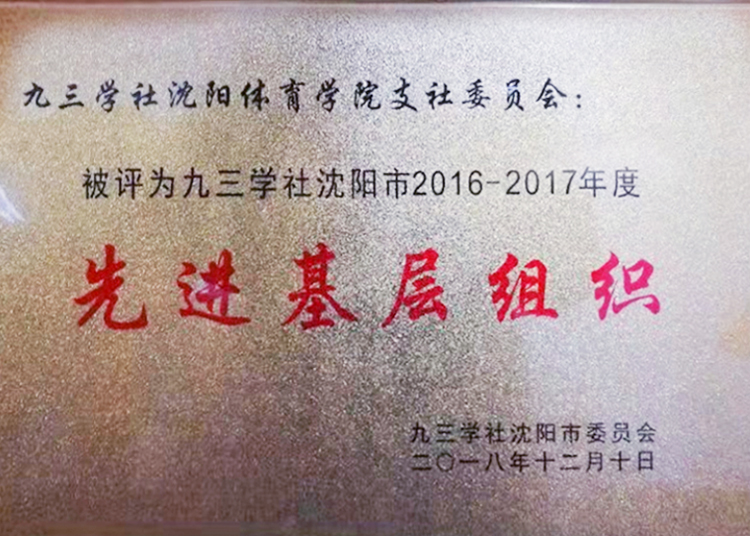 九三学社沈阳体育学院支社委员会：
被评为九三学社沈阳市2016-2017年度
先进基层组织
九三学社沈阳市委员会
二〇一八年十二月十日